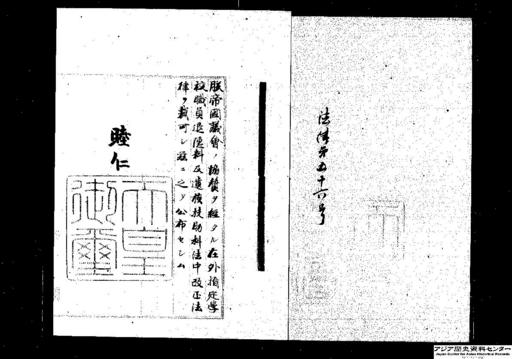 法律第五十六号
朕帝國議會ノ協賛ヲ經タル在外指定學
校職員退隠料及遺族扶助料法中改正法
律ヲ裁可シ茲ニ之ヲ公布セシム
睦仁
天皇御璽
アジア歴史資料センター
Japan Center for Asian Historical Records